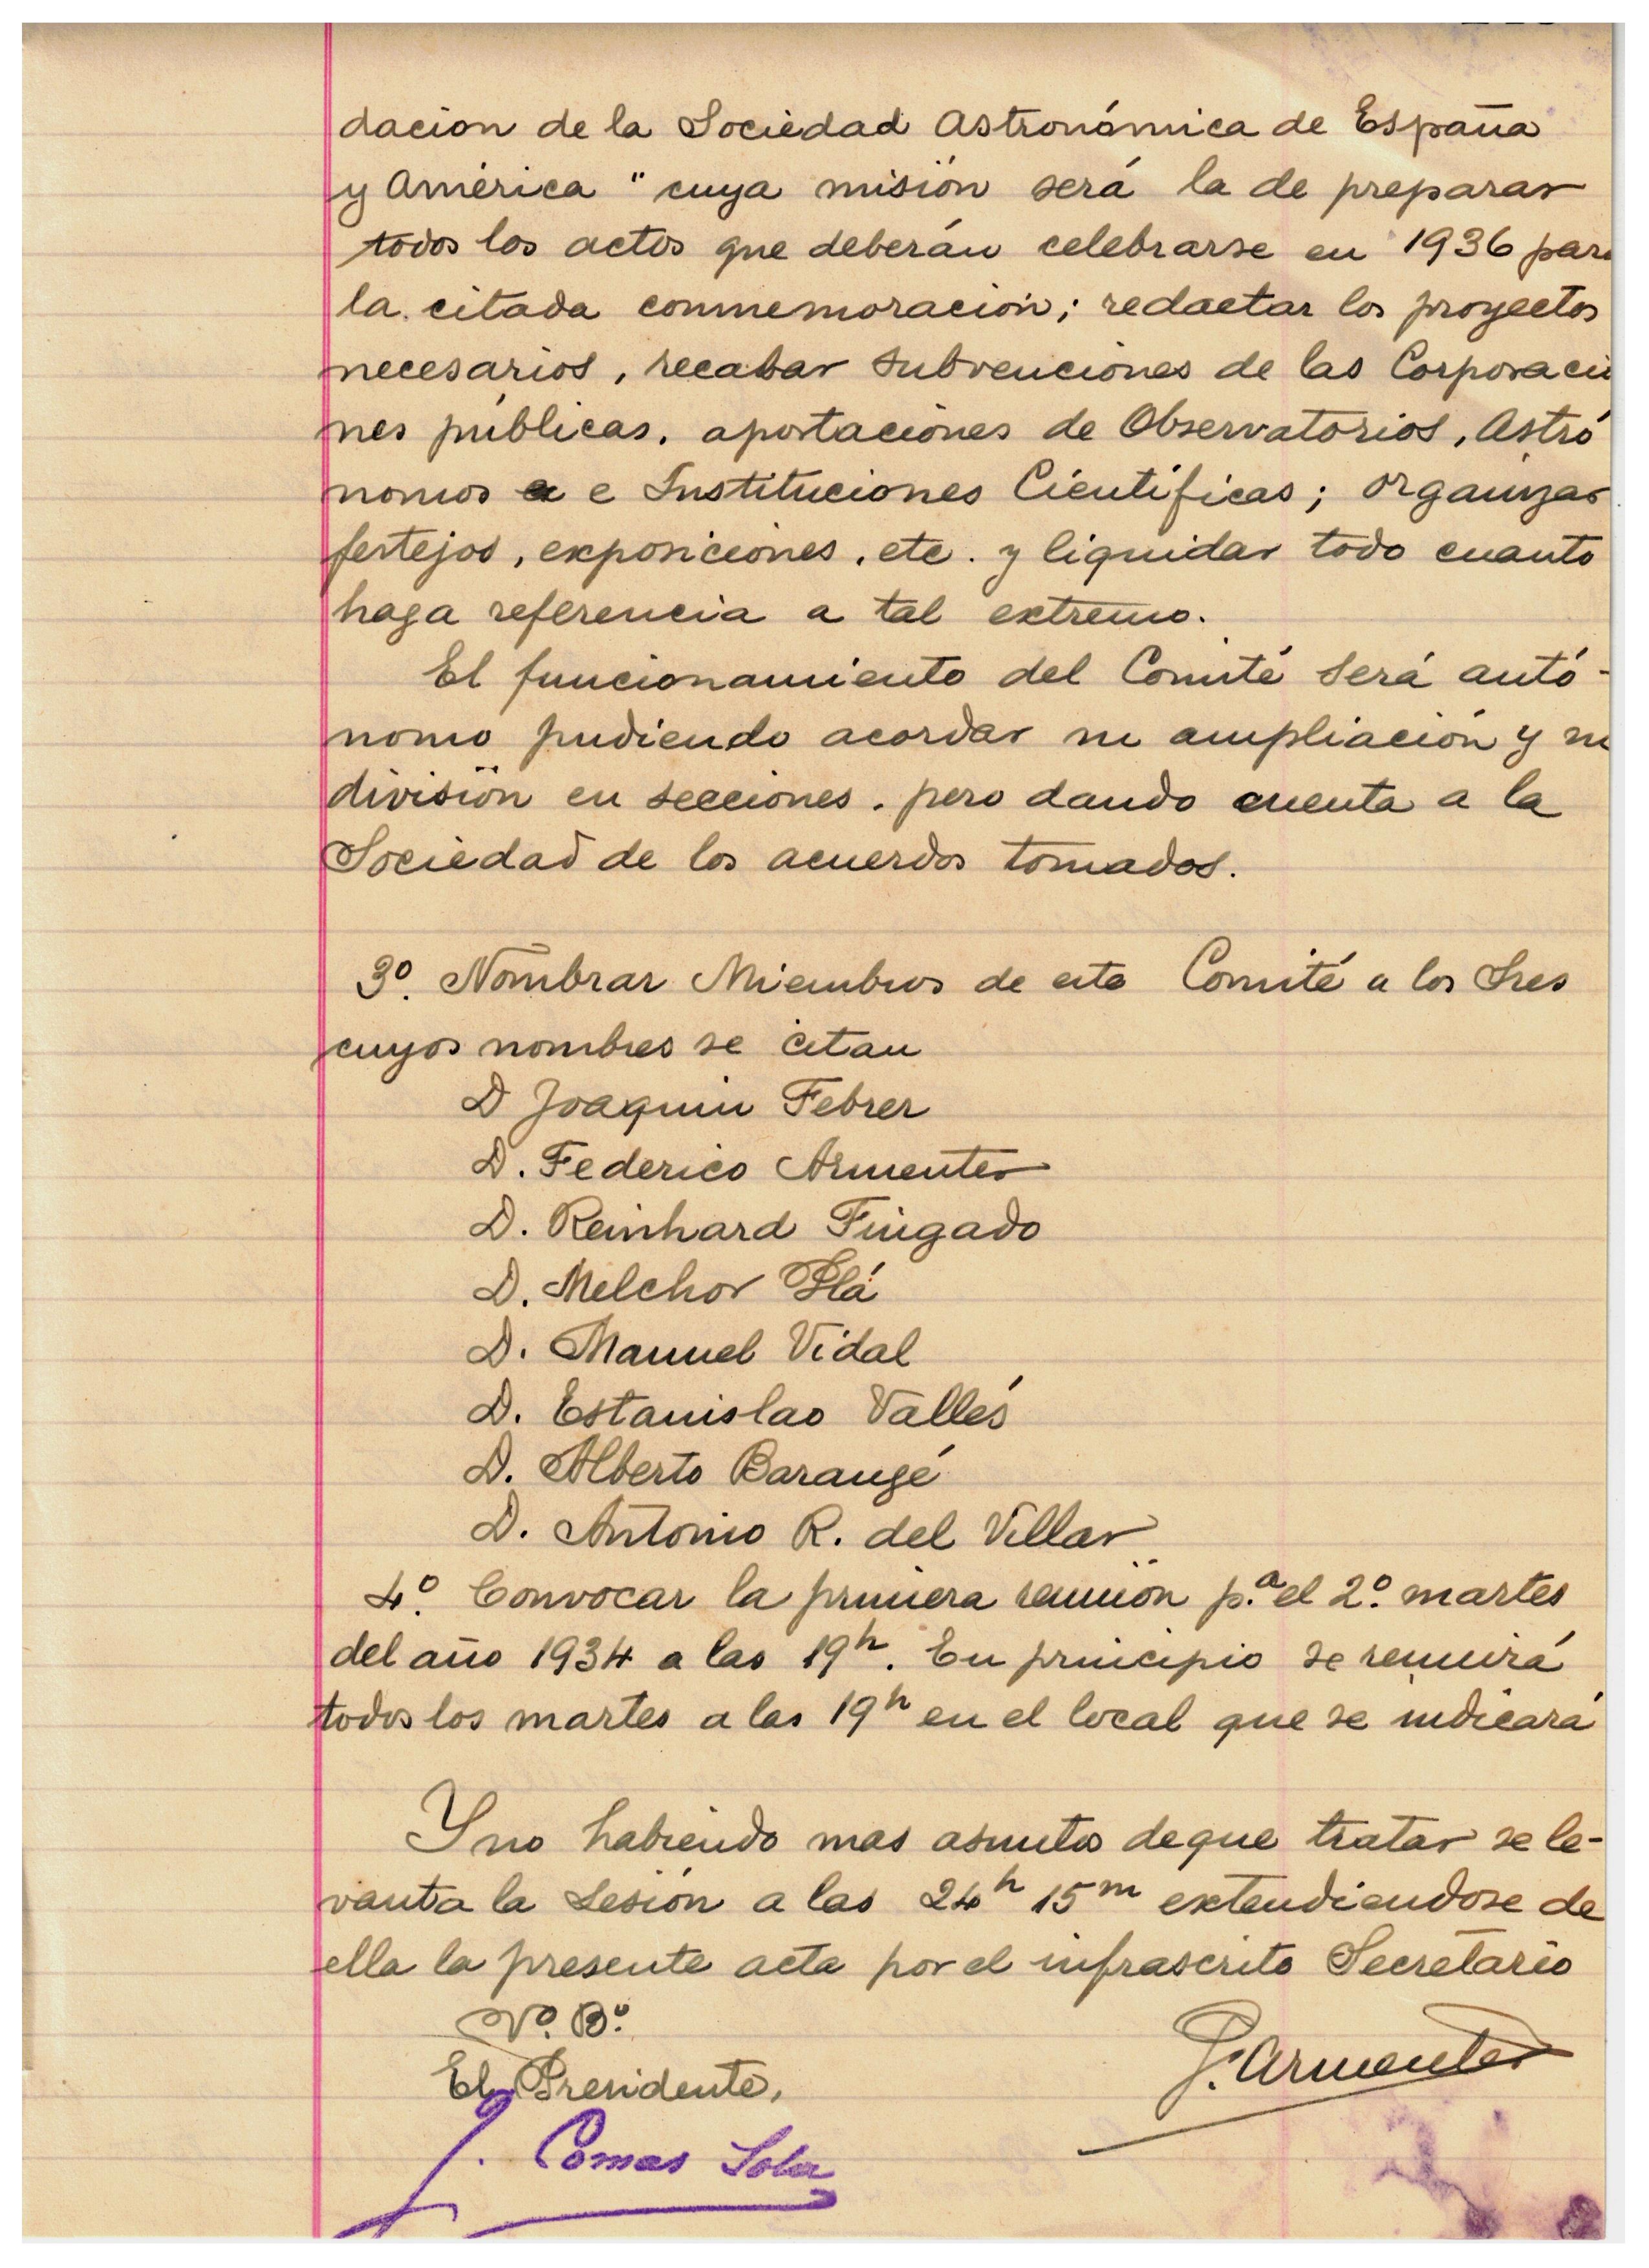 dacion de la Sociedad Astronómica de España
y América" cuya misión será la de preparar
todos los actos que deberán celebrarse en 1936 para
la citada conmemoración; redactar los proyectos
necesarios, recabar subvenciones de las Corporacio
nes públicas, aportaciones de Observatorios, Astró
nomos e Instituciones Científicas; organizar
festejos, exposiciones, etc. y liquidar todo cuanto
haga referencia a tal extremo.
El funcionamiento del Comité será autó-
nomo pudiendo acordar su ampliación y su
división en secciones, pero dando cuenta a la
Sociedad de los acuerdos tomados.
3º. Nombrar Miembros de este Comité a los Sres
cuyos nombres se citan
D Joaquin Febrer
D. Federico Armenter
D. Reinhard Fingado
D. Melchor Plá
D. Manuel Vidal
D. Estanislao Vallés
D. Alberto Barangé
D. Antonio R. del Villar
4º. Convocar la primera reunión p.ª el 2º. martes
del año 1934 a las 19h. En principio se reunirá
todos los martes a las 19h en el local que se indicará
Y no habiendo mas asuntos de que tratar se le-
vanta la Sesión a las 24h 15m extendiendose de
ella la presente acta por el infrascrito Secretario
Vº. Bº.
El Presidente,
F. Armenter
J. Comas Solà